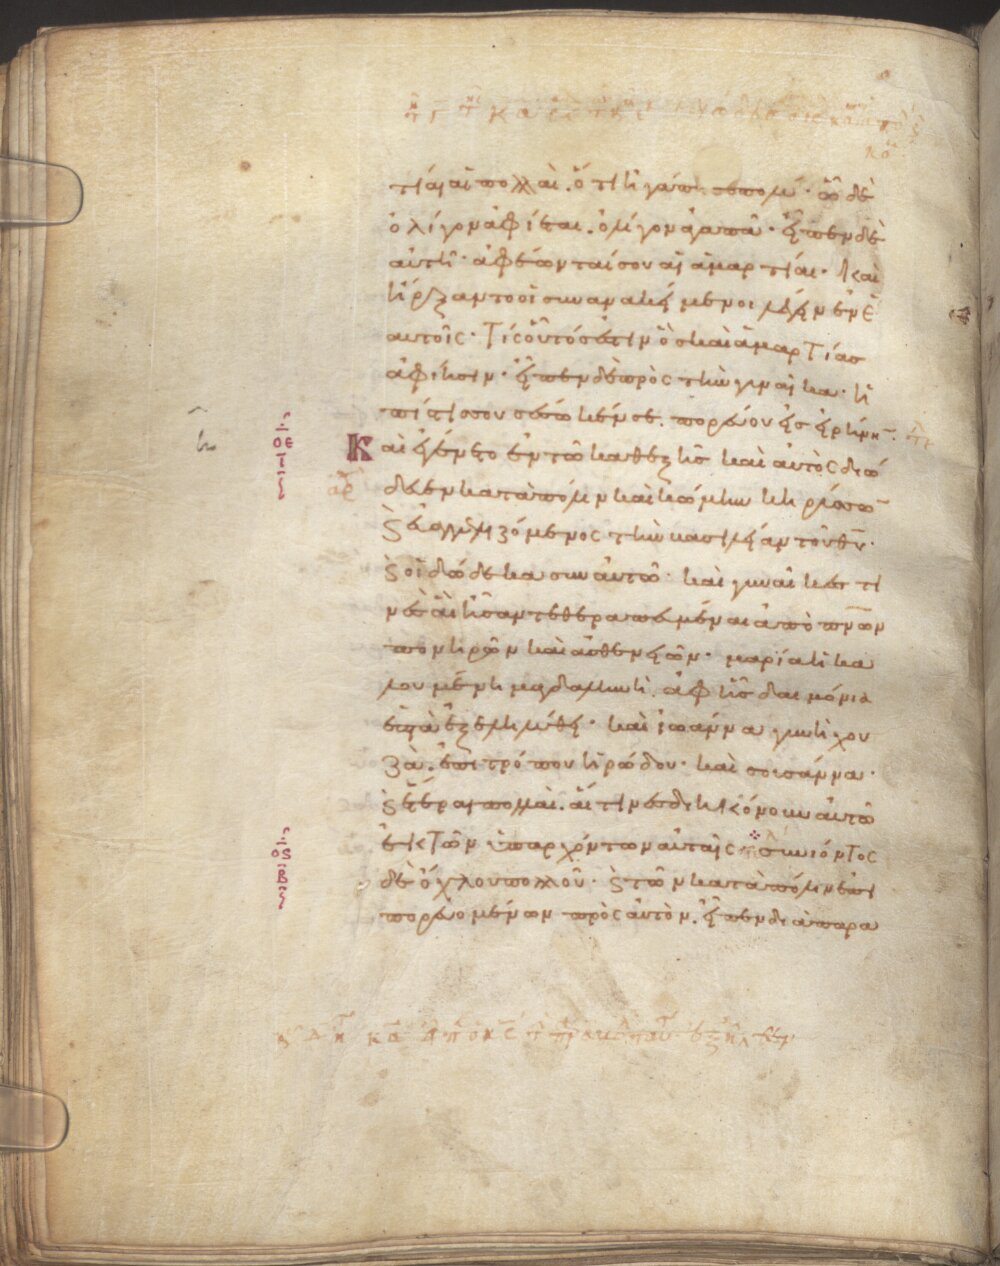 τίαι αἱ πολλαί. ὅτι ἠγάπησε πολύ· ᾧ δὲ
ὀλίγον ἀφίεται. ὀλίγον ἀγαπᾶ· εἶπεν δὲ
αὐτῆ· ἀφέωνταί σου αἱ ἁμαρτίαι· καὶ
ἤρξαντο οἱ συνανακείμενοι λέγειν ἐν ἑ
αυτοῖς· Τίς οὗτός ἐστιν ὃς καὶ ἁμαρτίας
ἀφίησιν· εἶπεν δὲ πρὸς τὴν γυναῖκα· ἡ
πίστις σου σέσωκέν σε. πορεύου εἰς εἰρήνην·
Καὶ ἐγένετο ἐν τῶ καθεξῆς καὶ αὐτὸς διώ
δευεν κατὰ πόλιν καὶ κώμην κηρύσσων
ϗ εὐαγγελιζόμενος τὴν βασιλείαν τοῦ θῦ·
ϗ οἱ δώδεκα σὺν αὐτῶ· καὶ γυναῖκές τι
νες αἳ ἦσαν τεθεραπευμέναι ἀπὸ πνῶν
πονηρῶν καὶ ἀσθενειῶν· μαρία ἡ κα
λουμένη μαγδαληνὴ. ἀφ ἧς δαιμόνια
ἑπτὰ ἐξεληλύθει· καὶ ἰωάννα γυνὴ χου
ζᾶ. ἐπιτρόπου ἡρώδου· καὶ σουσάννα·
ϗ ἕτεραι πολλαί. αἵτινες διηκόνουν αὐτῶ
ἐκ τῶν ὑπαρχόντων αὐταῖς· συνιόντος
δὲ ὄχλου πολλοῦ· ϗ τῶν κατὰ πόλιν ἐπι
πορευομένων πρὸς αὐτὸν. εἶπεν διὰ παρα